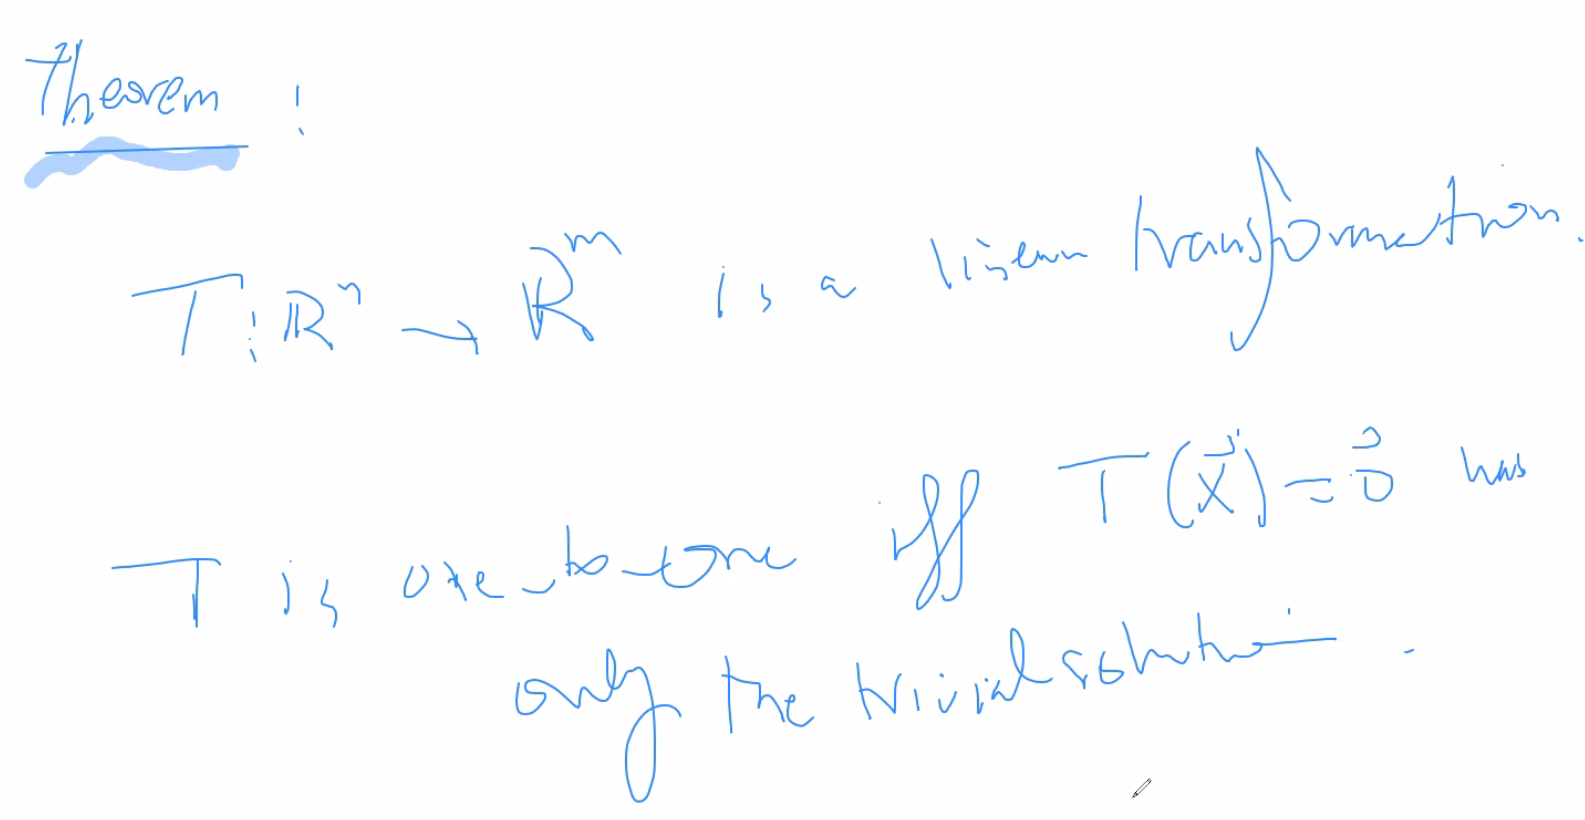 Theorem :
T : ℝⁿ → ℝᵐ is a linear transformation.
T is one-to-one iff T(x⃗) = 0⃗ has
only the trivial solution.